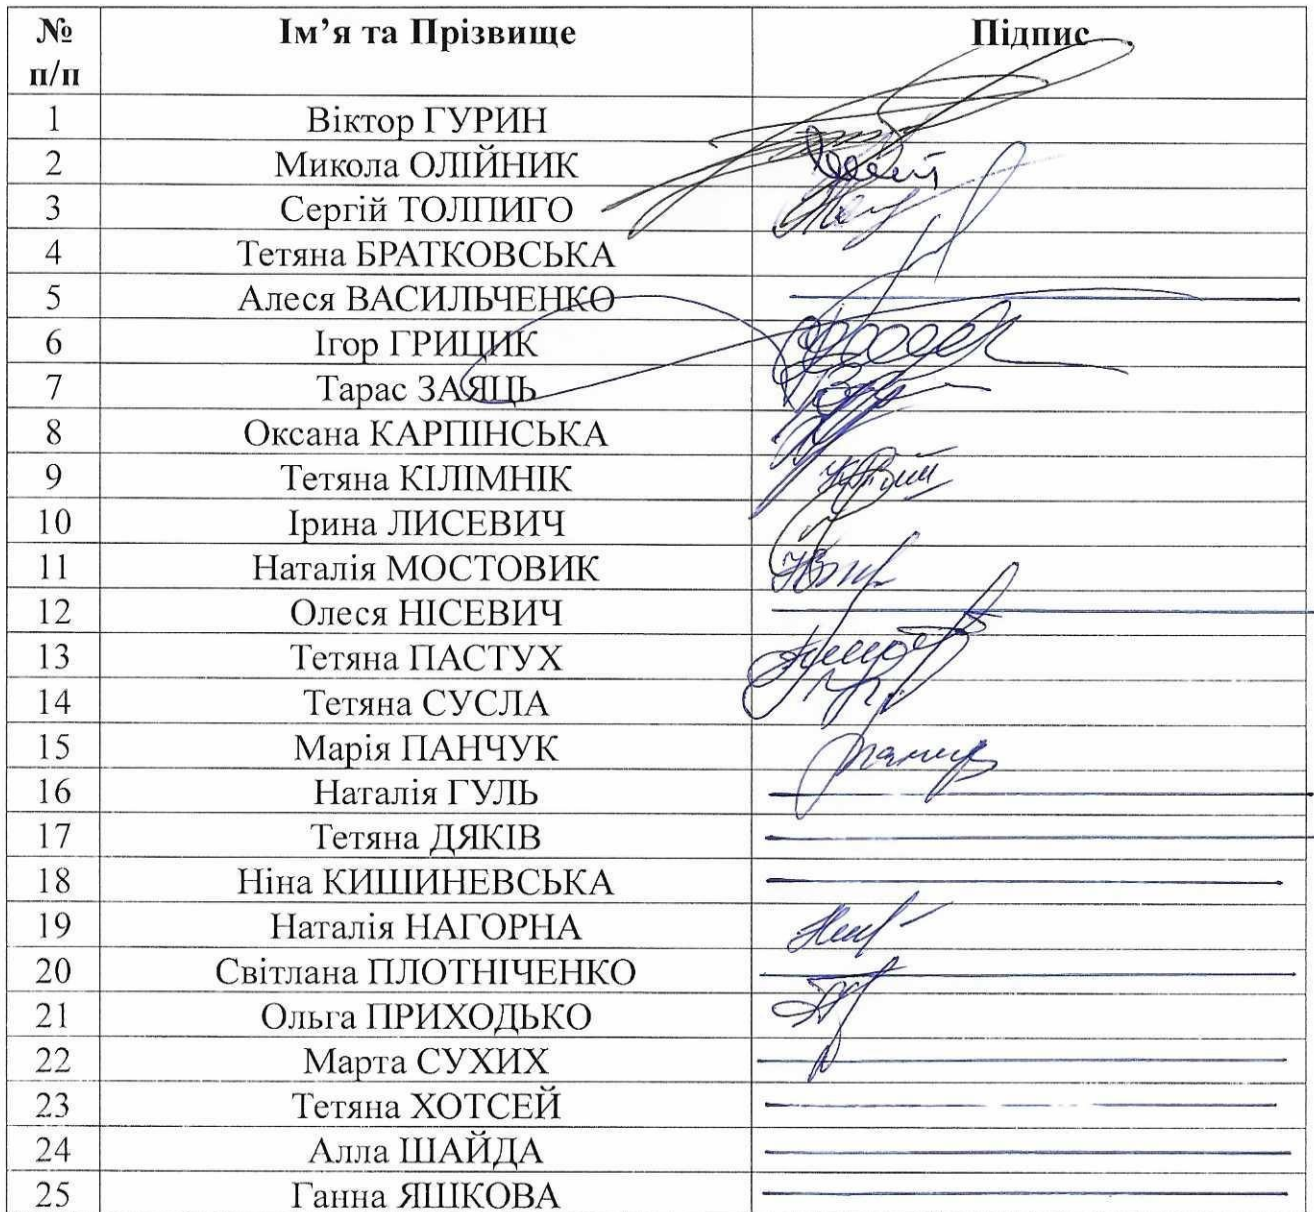 № п/п Ім’я та Прізвище Підпис
1 Віктор ГУРИН
2 Микола ОЛІЙНИК
3 Сергій ТОЛПИГО
4 Тетяна БРАТКОВСЬКА
5 Алеся ВАСИЛЬЧЕНКО
6 Ігор ГРИЦИК
7 Тарас ЗАЯЦЬ
8 Оксана КАРПІНСЬКА
9 Тетяна КІЛІМНІК
10 Ірина ЛИСЕВИЧ
11 Наталія МОСТОВИК
12 Олеся НІСЕВИЧ
13 Тетяна ПАСТУХ
14 Тетяна СУСЛА
15 Марія ПАНЧУК
16 Наталія ГУЛЬ
17 Тетяна ДЯКІВ
18 Ніна КИШИНЕВСЬКА
19 Наталія НАГОРНА
20 Світлана ПЛОТНІЧЕНКО
21 Ольга ПРИХОДЬКО
22 Марта СУХИХ
23 Тетяна ХОТСЕЙ
24 Алла ШАЙДА
25 Ганна ЯШКОВА